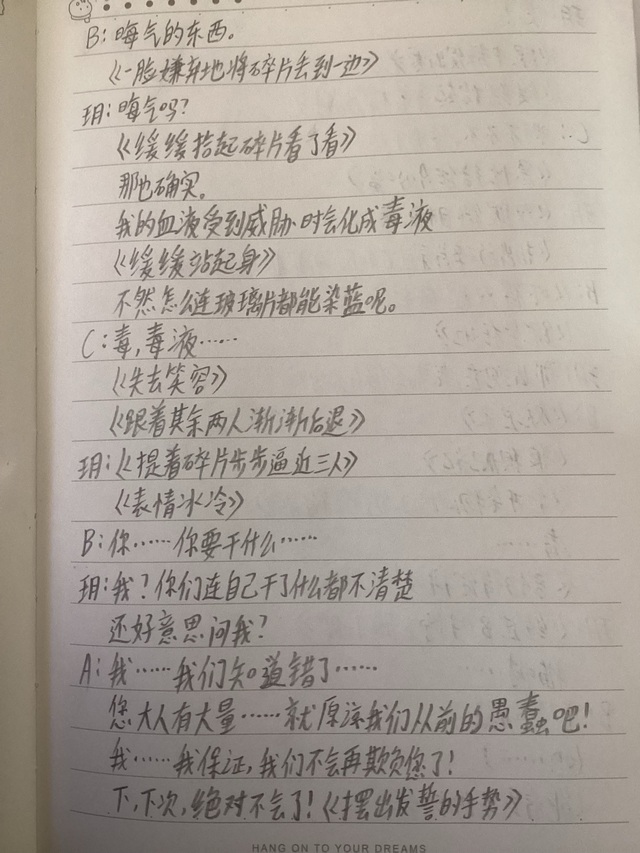 B:晦气的东西。
《一脸嫌弃地将碎片丢到一边》
玥:晦气吗?
《缓缓拾起碎片看了看》
那也确实。
我的血液受到威胁时会化成毒液
《缓缓站起身》
不然怎么连玻璃片都能染蓝呢。
C:毒,毒液……
《失去笑容》
《跟着其余两人渐渐后退》
玥:《提着碎片步步逼近三人》
《表情冰冷》
B:你……你要干什么……
玥:我?你们连自己干了什么都不清楚
还好意思问我?
A:我……我们知道错了……
您大人有大量……就原谅我们从前的愚蠢吧!
我……我保证,我们不会再欺负您了!
下,下次,绝对不会了!《摆出发誓的手势》
HANG ON TO YOUR DREAMS